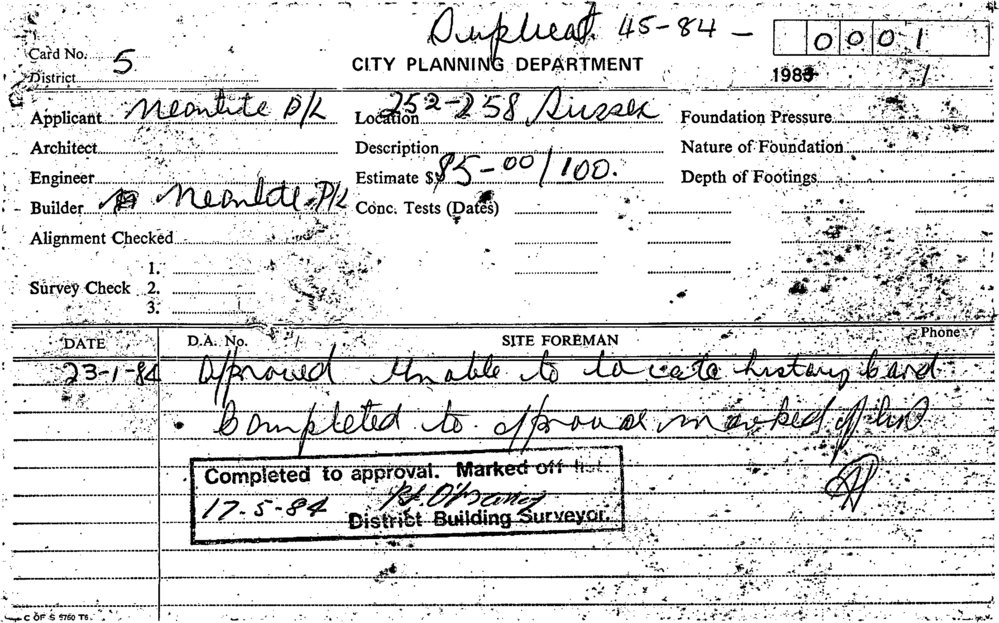 Duplicat. 45-84 - 0001
Card No. 5
District
CITY PLANNING DEPARTMENT
198
Applicant Neonlite P/L Location 252-258 Sussex Foundation Pressure
Architect Description Nature of Foundation
Engineer Estimate $ 85-00/100. Depth of Footings
Builder Neonlite P/L Conc. Tests (Dates)
Alignment Checked
1.
Survey Check 2.
3.
DATE D.A. No. SITE FOREMAN Phone
23-1-84 Approved Unable to locate history card
Completed to approval marked off list
Completed to approval. Marked off list.
17-5-84
District Building Surveyor.
C OF S 5760 T6